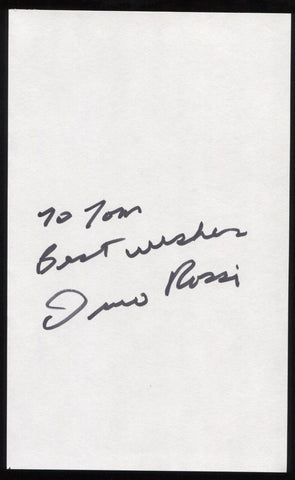 To Tom
Best wishes
Rossi